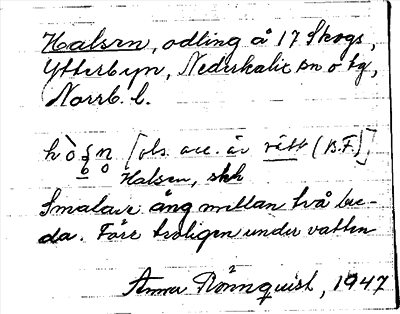 Halsen, odling å 17 Skogs,
Ytterbyn, Nederkalix sn o tg,
Norrb. l.
[obs. acc. är rätt (B.F.)]
Halsen, shh
Smalare äng mellan två bre-
da. Förr troligen under vatten
Anna Rönnquist, 1947